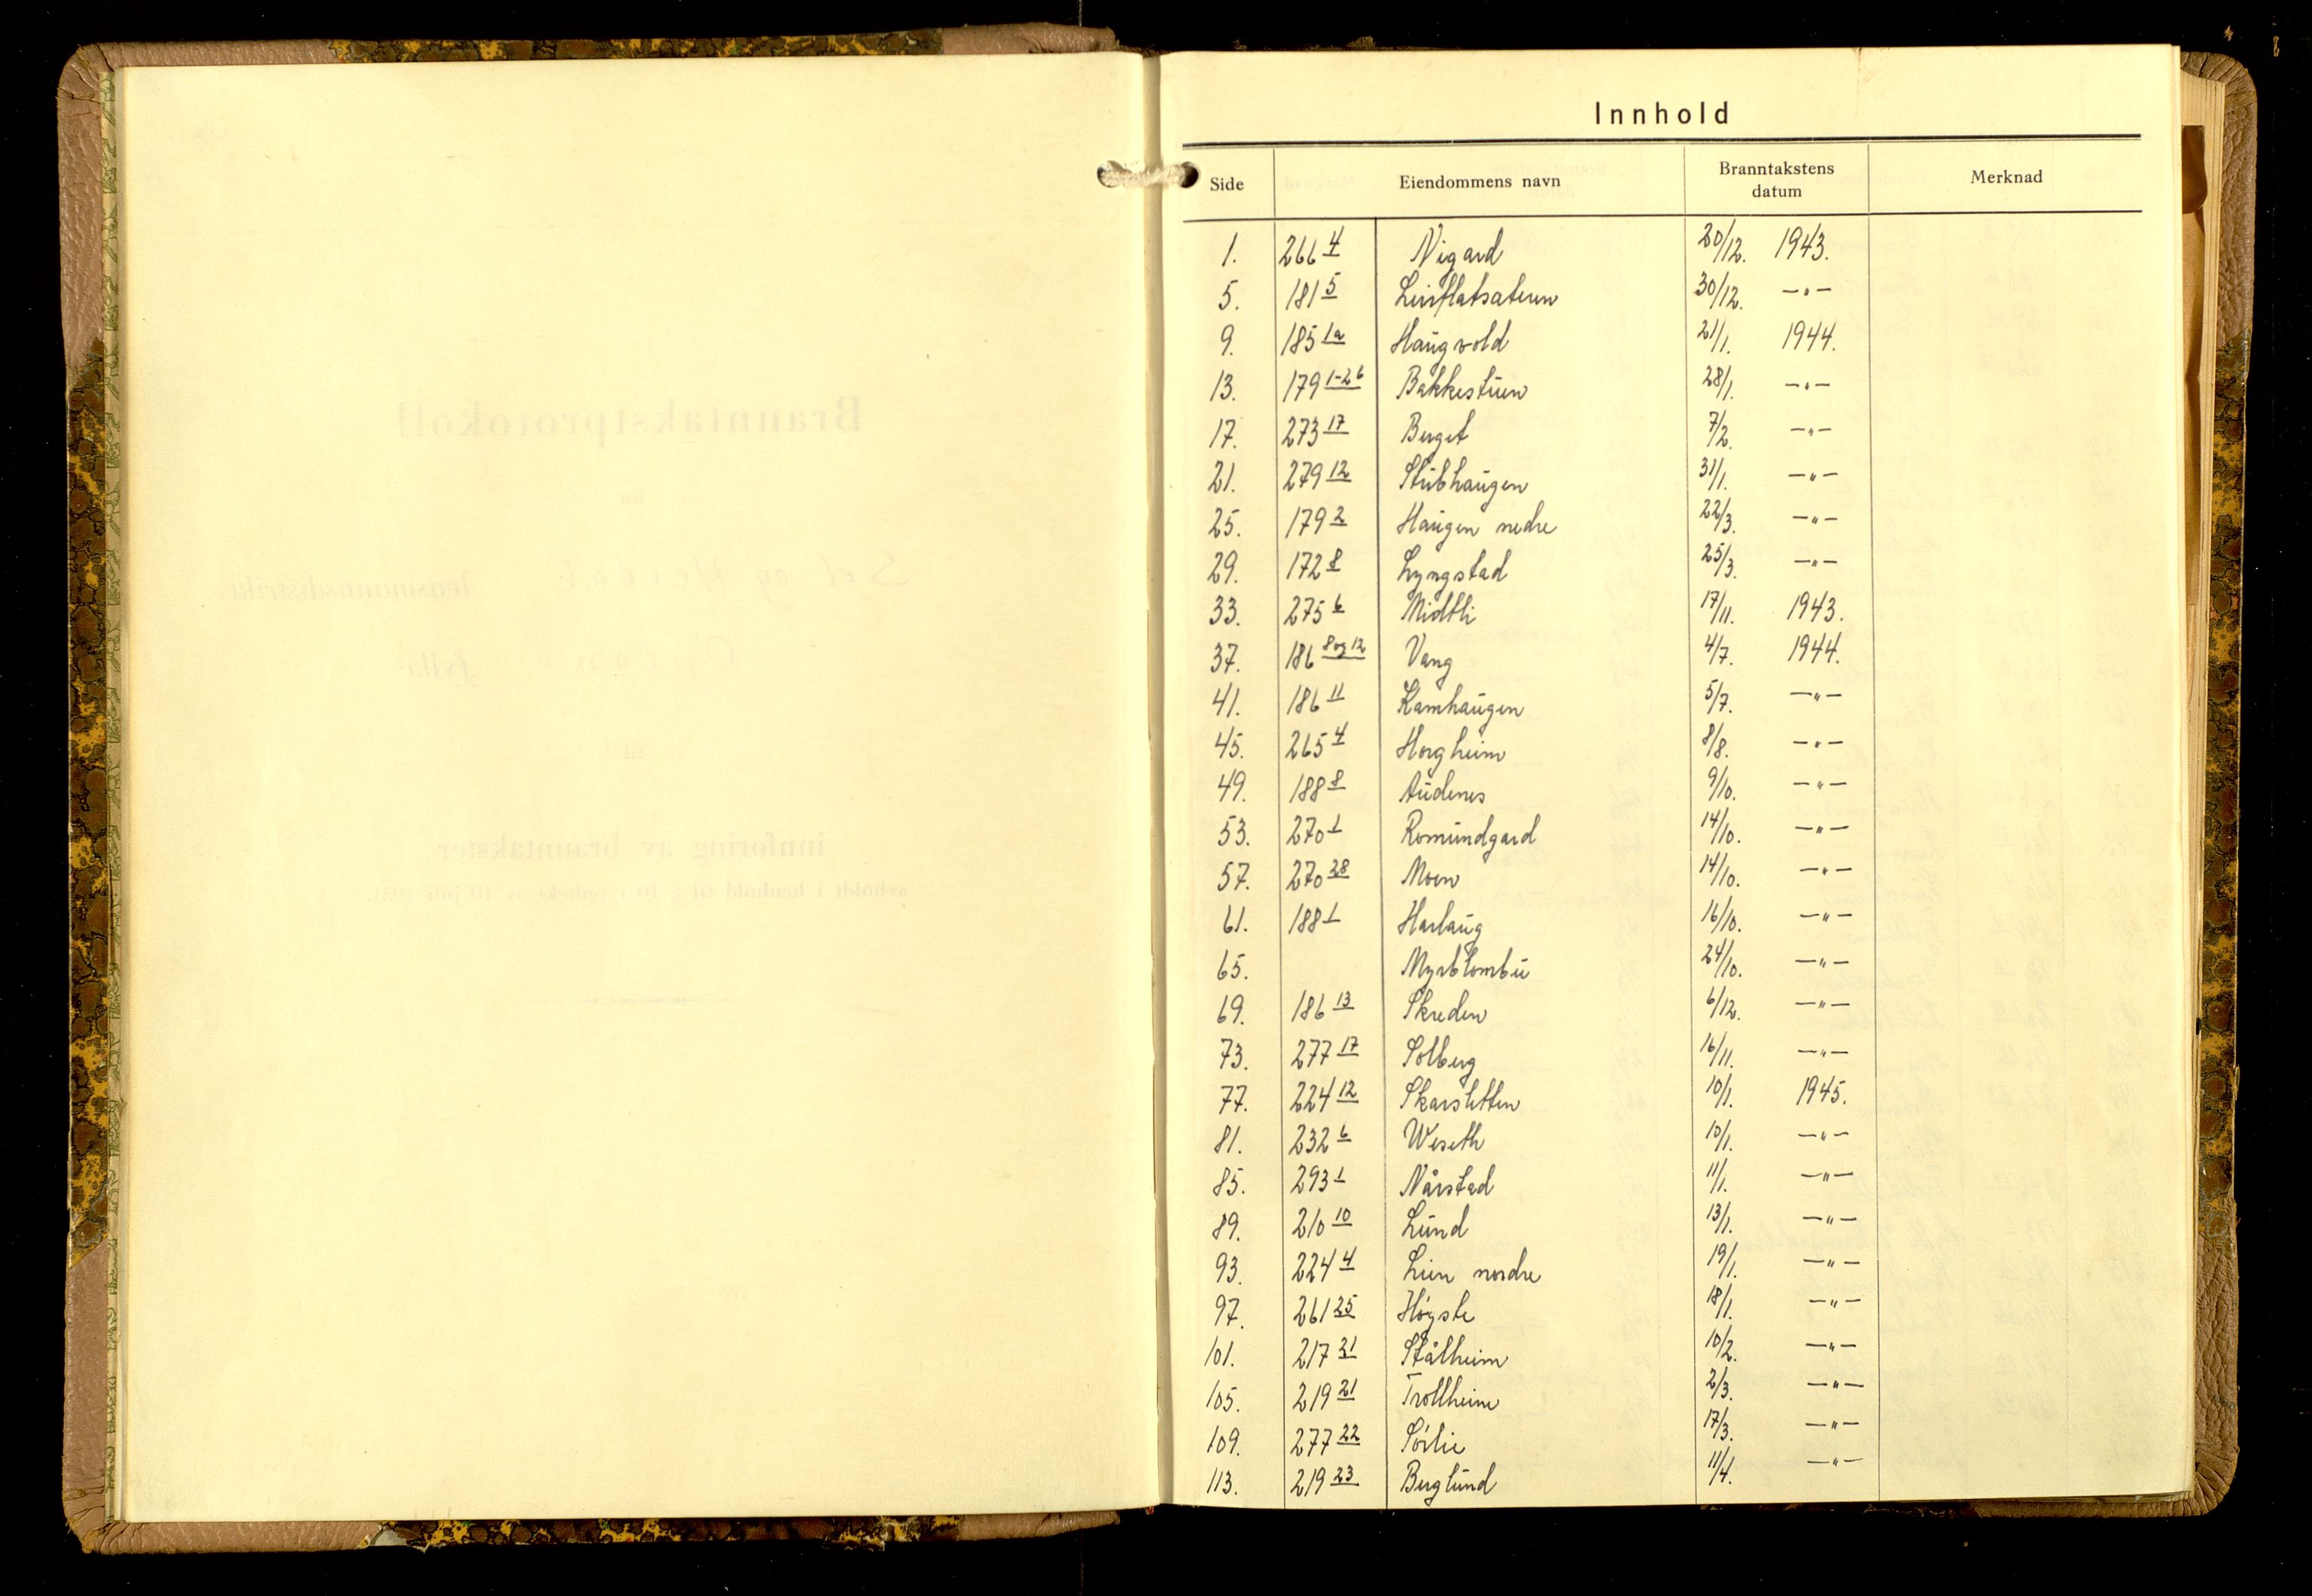 Innhold
Side Eiendommens navn Branntakstens datum Merknad
1. 266 4 Nigard 20/12. 1943.
5. 181 5 Leirflatsæteren 30/12. —"—
9. 185 1a Haugvold 21/1. 1944.
13. 179 1-26 Bakkestuen 28/1. —"—
17. 273 17 Berget 7/2. —"—
21. 279 12 Stubhaugen 31/1. —"—
25. 179 2 Haugen nedre 22/3. —"—
29. 172 8 Lyngstad 25/3. —"—
33. 275 6 Midtli 17/11. 1943.
37. 186 8 og 12 Vang 4/7. 1944.
41. 186 11 Kamhaugen 5/7. —"—
45. 265 4 Horgheim 8/8. —"—
49. 188 8 Audenes 9/10. —"—
53. 270 1 Romundgard 14/10. —"—
57. 270 28 Moen 14/10. —"—
61. 188 1 Harlaug 16/10. —"—
65. Myrblombu 24/10. —"—
69. 186 13 Skreden 6/12. —"—
73. 277 17 Solberg 16/11. —"—
77. 224 12 Skarsletten 10/1. 1945.
81. 232 6 Weseth 10/1. —"—
85. 293 1 Nårstad 11/1. —"—
89. 210 10 Lund 13/1. —"—
93. 224 4 Lien nordre 19/1. —"—
97. 261 25 Høyste 18/1. —"—
101. 217 31 Stålheim 10/2. —"—
105. 219 21 Trollheim 2/3. —"—
109. 277 22 Sørlie 17/3. —"—
113. 219 23 Berglund 11/4. —"—